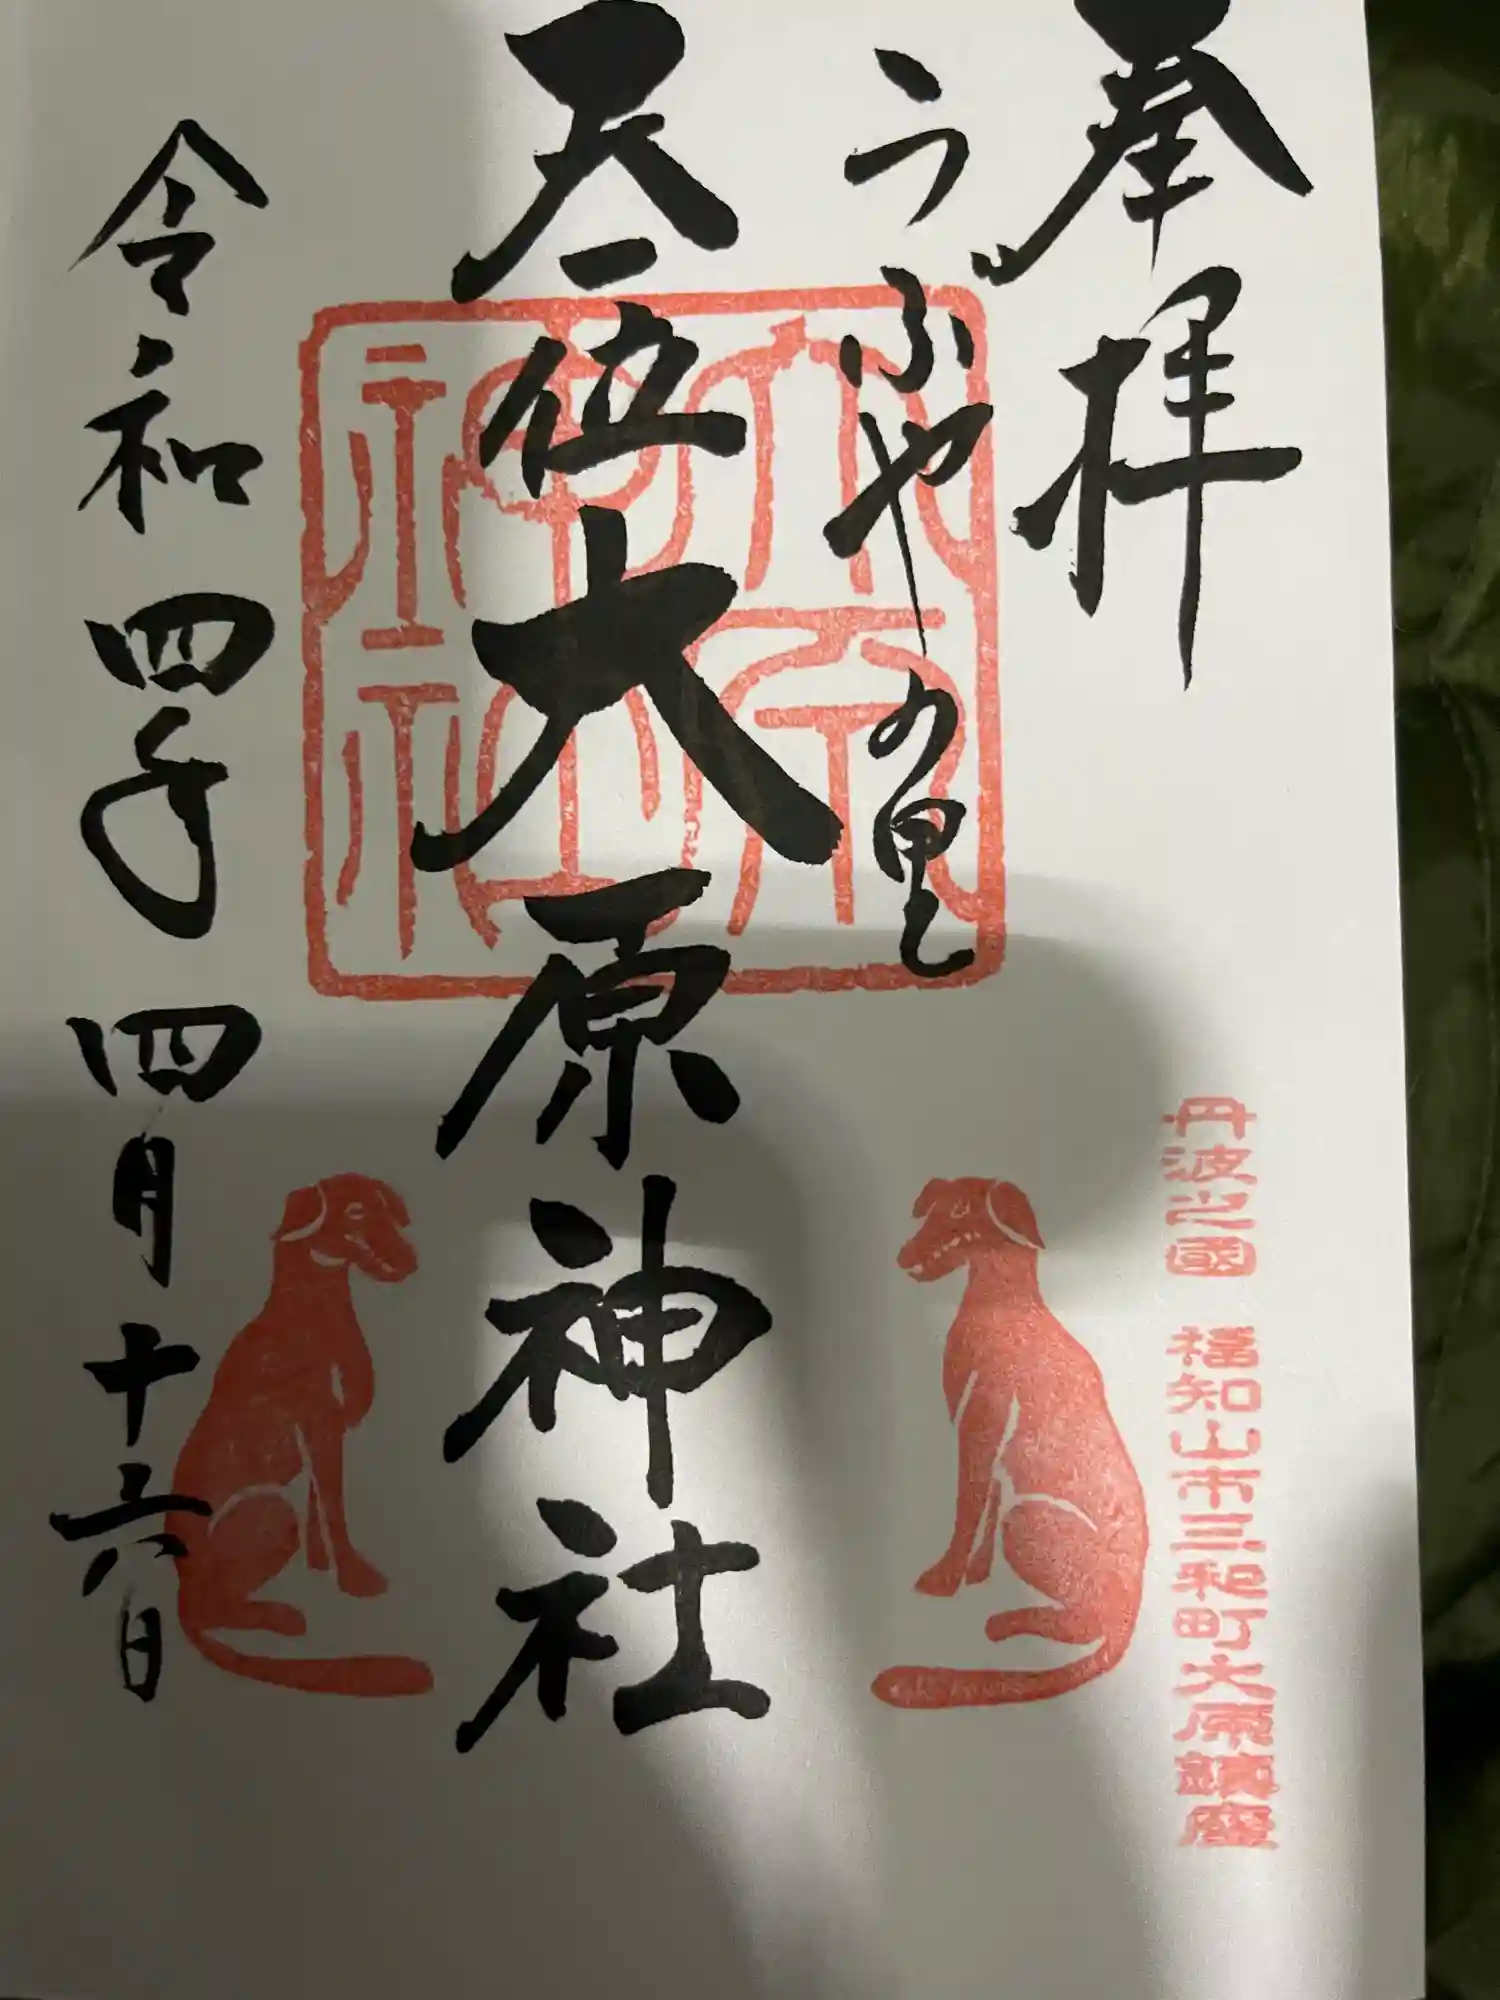 奉拝
うぶやの里
天一位大原神社
令和四年四月十六日
大原神社
丹波之國 福知山市三和町大原鎮座